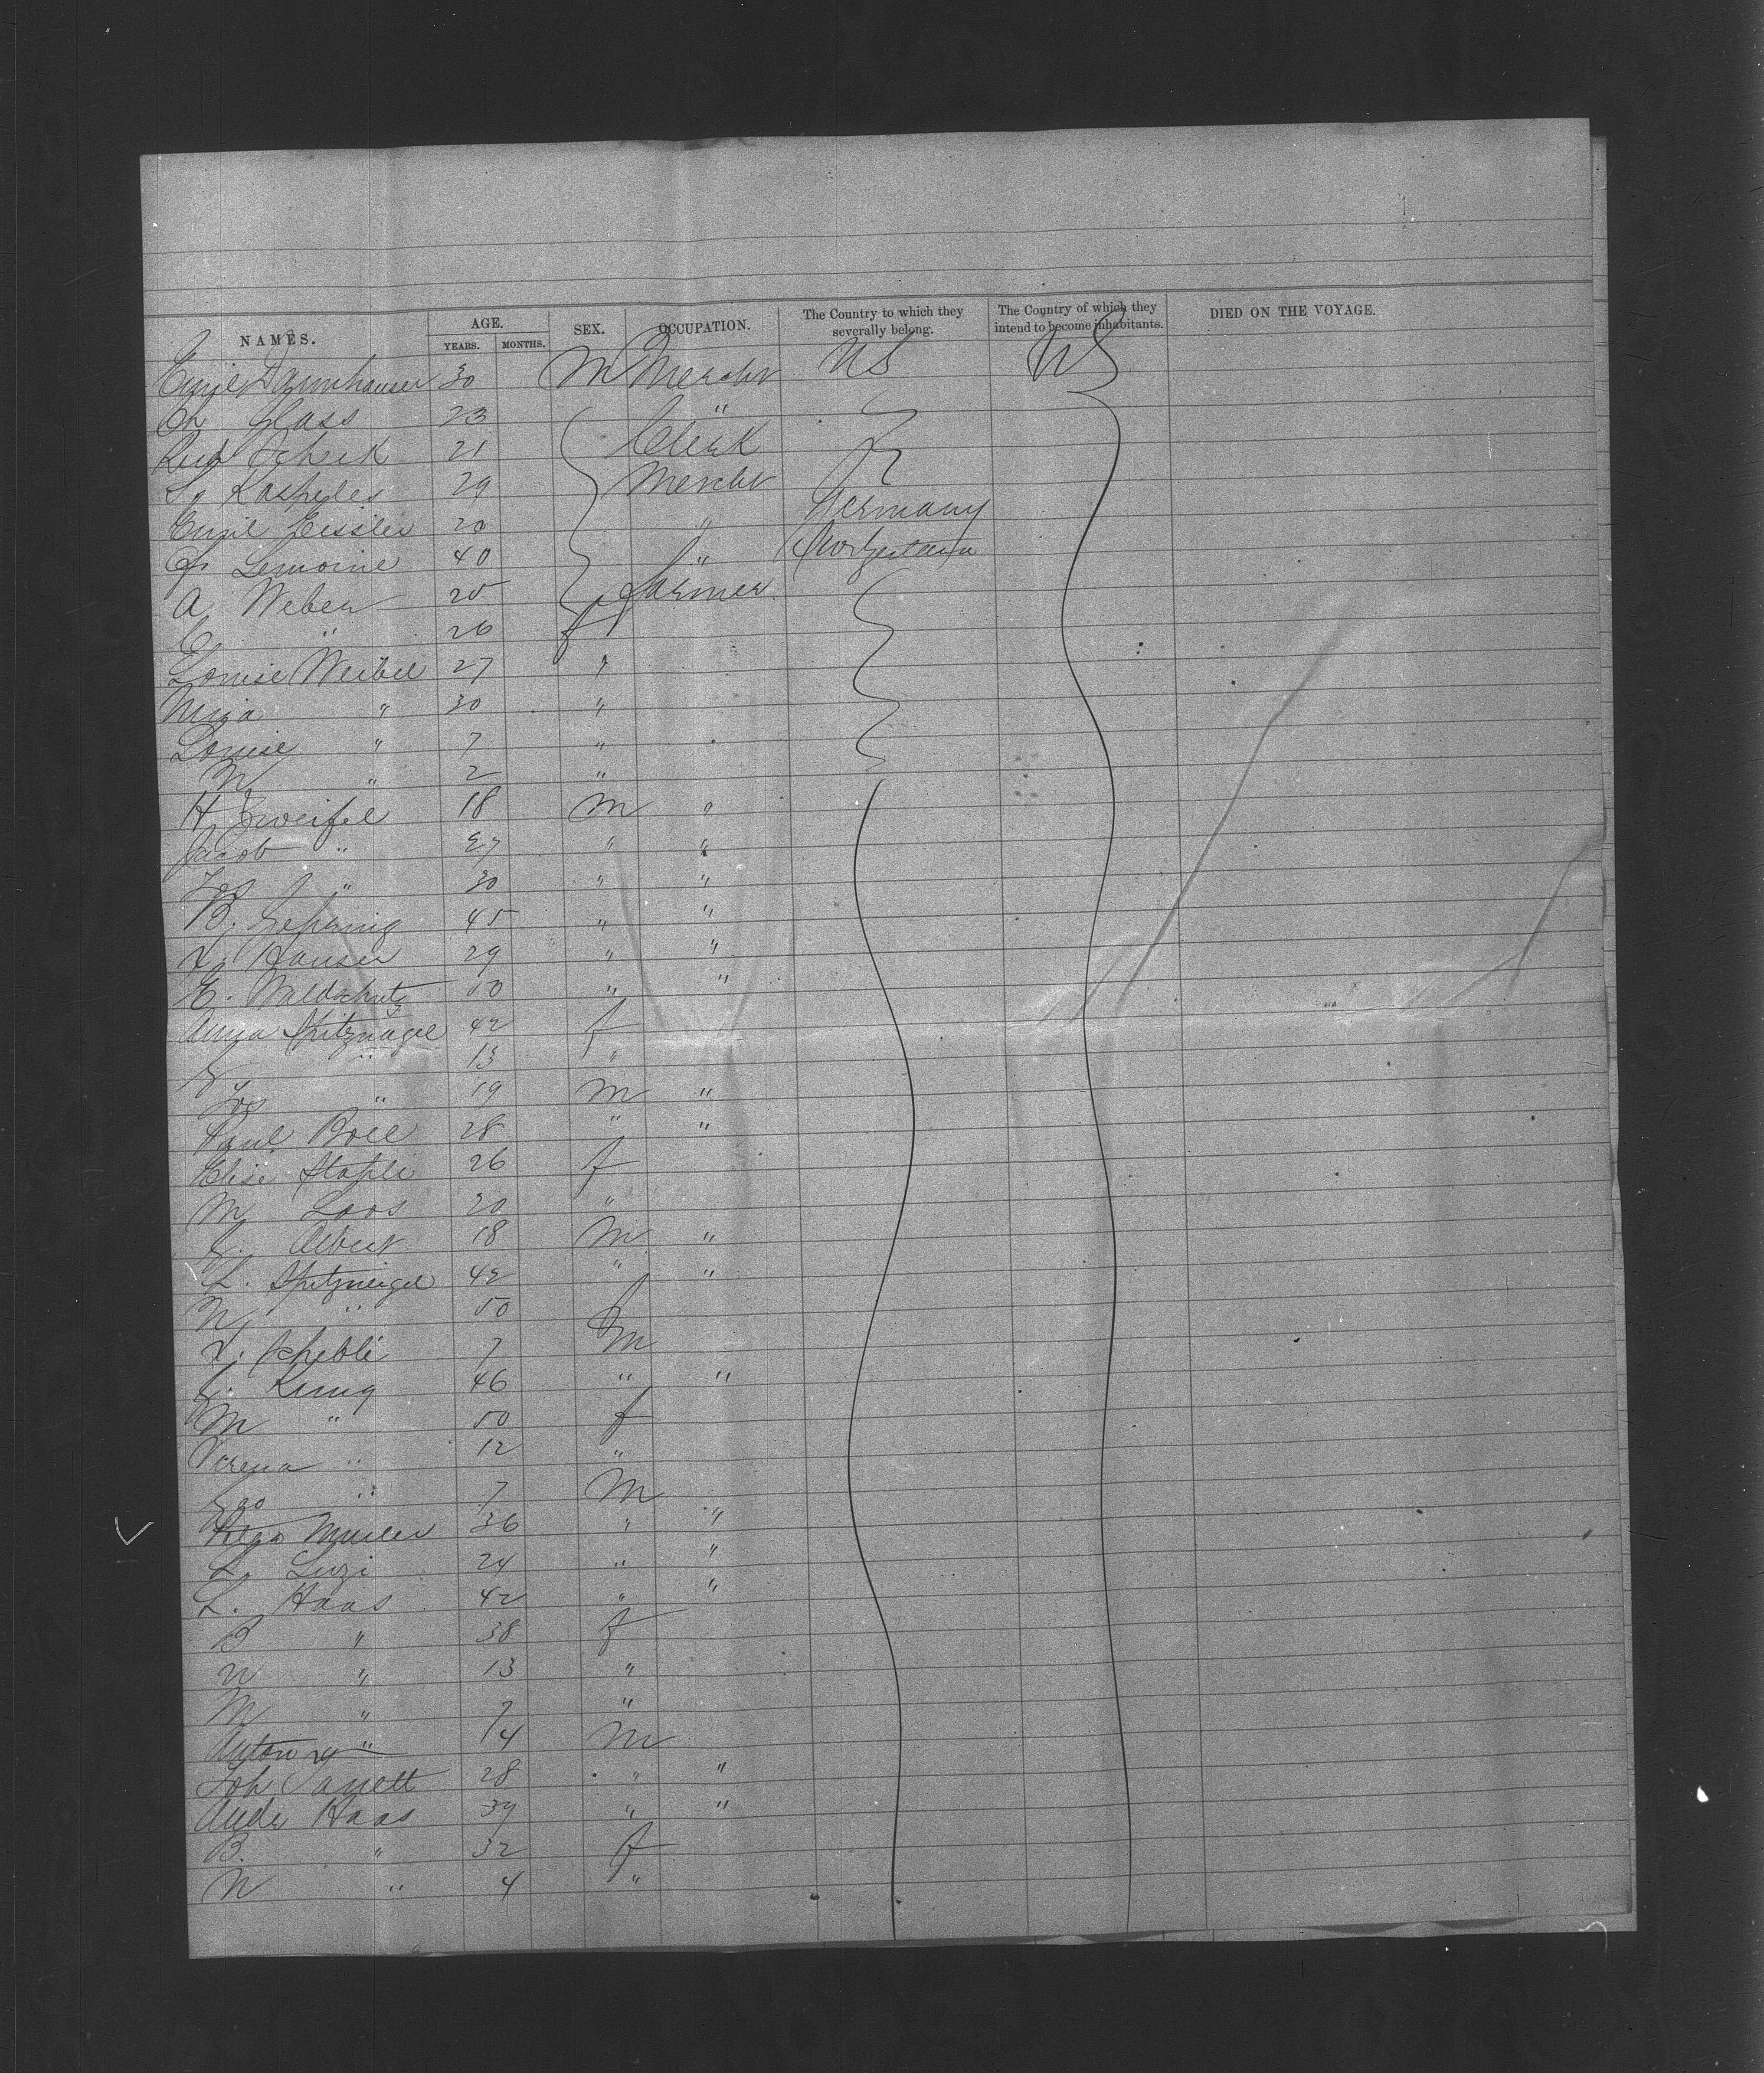 NAMES. AGE. SEX. OCCUPATION. The Country to which they severally belong. The Country of which they intend to become inhabitants. DIED ON THE VOYAGE.
YEARS. MONTHS.
Emil 30 M Mercht US US
Ch Glass 23 "
Rud Scheik 21 Clerk
L. 29 Mercht
Emil Eissler 20 " Germany
Lemoine 40 " Switzerland
A Weber 25 Farmer
E " 26 f
Louise Weibel 27 "
30 " "
Louise " 7 "
N " 2 "
H Zweifel 18 M "
Jacob " 27 " "
Jos " 30 " "
B. Gehring 45 " "
X. Hauser 29 " "
E. Waldschutz 50 " "
Anna Spitznagel 42 f
" 13 "
Jos " 19 M "
Paul Boll 28 " "
Elise Stapli 26 f
M Loos 20 "
Albert 18 M "
L. Spitznagel 42 " "
N " 50 f
X. Schebli 7 M
J. Kung 46 " "
M " 50 f
Verena " 12 "
" 7 M
Muller 36 " "
L. Luzi 24 " "
L. Haas 42 " "
B " 38 f
N " 13 "
M " 7 "
Anton " 14 M
Joh 28 " "
Andr Haas 39 " "
B. " 32 f
N " 4 "